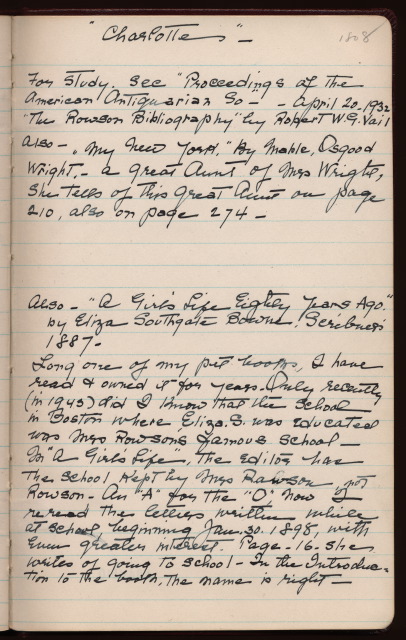 "Charlottes" -
1808
For Study. See "Proceedings of the
American Antiquarian So - - April 20. 1932
"The Rowson Bibliography" by Robert W. G. Vail
Also - "My New York," By Mable, Osgood
Wright, - a great Aunt of Mrs Wright,
She tells of this Great Aunt on page
210, also on page 274 -
Also - "A Girl's Life Eighty Years Ago."
by Eliza Southgate Bowne. Scribners
1887 -
Long one of my pet books, I have
read & owned it for years. Only recently
(in 1943) did I know that the School
in Boston where Eliza. S. was educated
was Mrs Rowson's famous school -
In "A Girls Life", the editor has
the school kept by Mrs Rawson, not
Rowson - An "A" for the "O" Now I
reread the letters written while
at school, beginning Jan. 30. 1898, with
even greater interest. Page - 16. She
writes of going to school - In the Introduc =
tion to the book, the name is right -